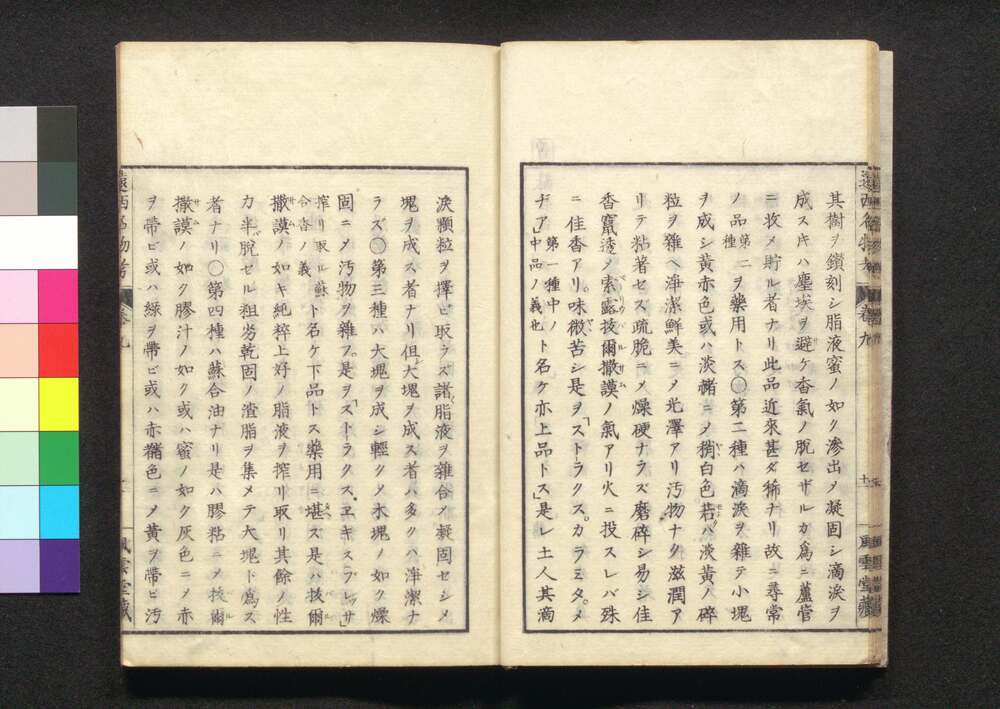 其樹ヲ鑚刻シ脂液蜜ノ如ク滲出メ凝固シ滴涙ヲ
成スキハ塵埃ヲ避ケ香氣ノ脱セザルカ爲ニ蘆管
ニ收メ貯ル者ナリ此品近來甚ダ稀ナリ故ニ尋常
ノ品第二種ヲ藥用トス〇第二種ハ滴涙ヲ雜テ小塊
ヲ成シ黄赤色或ハ淡赭ニメ稍白色若ハ淡黄ノ碎
粒ヲ雜ヘ淨潔鮮美ニメ光澤アリ汚物ナク滋潤ア
リテ粘著セズ疏脆ニメ燥硬ナラズ磨碎シ易シ佳
香竄透ノ索露拔爾撒謨ノ氣アリ火ニ投スレバ殊
ニ佳香アリ。味微苦シ是ヲ「ストラクス。カラミタ。メ
ヂア」第一種中ノ中品ノ義也ト名ケ亦上品トス」是レ土人其滴
涙顆粒ヲ擇ビ取ラズ諸脂液ヲ雜合メ凝固セシメ
塊ヲ成ス者ナリ但大塊ヲ成ス者ハ多クハ淨潔ナ
ラズ〇第三種ハ大塊ヲ成シ輕クメ木塊ノ如ク燥
固ニメ汚物ヲ雜フ。是ヲ「ストラクス。エキスプレッサ」
搾リ取ル蘇合香ノ義ト名ケ下品トス藥用ニ堪ズ是ハ拔爾
撒謨ノ如キ純粹上好ノ脂液ヲ搾リ取リ其餘ノ性
力半脱セル粗劣乾固ノ渣脂ヲ集メテ大塊ト爲ス
者ナリ〇第四種ハ蘇合油ナリ是ハ膠粘ニメ拔爾
撒謨ノ如ク膠汁ノ如ク或ハ蜜ノ如ク灰色ニメ赤
ヲ帶ビ或ハ綠ヲ帶ビ或ハ赤赭色ニメ黄ヲ帶ビ汚
遠西名物考
卷九
風雲堂藏